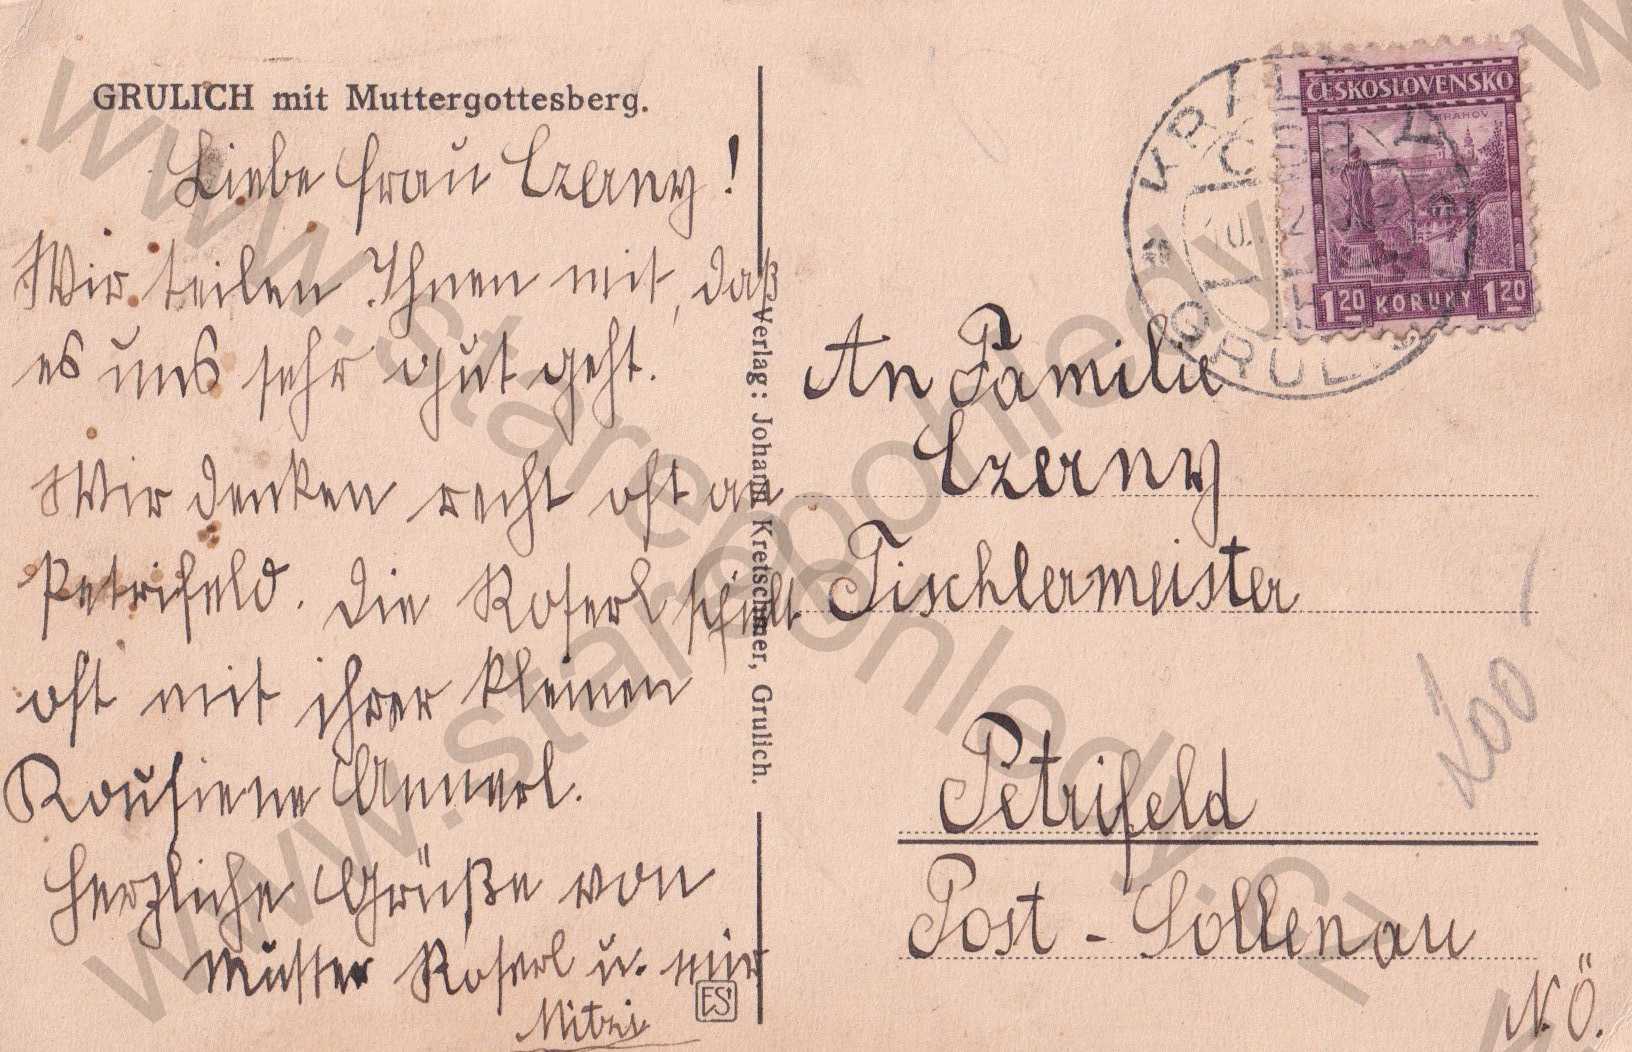 GRULICH mit Muttergottesberg.
Liebe Frau Czerny!
Wir teilen Ihnen mit, daß
es uns sehr gut geht.
Wir denken recht oft an
Petrifeld. Die Roserl spielt
oft mit ihrer kleinen
Kousiene Annerl.
Herzliche Grüße von
Mutter Roserl u. mir
Mitzi
ES
Verlag: Johann Kretschmer, Grulich.
ČESKOSLOVENSKO
STRAHOV
1.20 KORUNY 1.20
KRÁLÍKY
GRULICH
An Familie
Czerny
Tischlermeister
Petrifeld
Post - Sollenau
N.Ö.
200
www.starepohledy.cz
www.starepohledy.cz